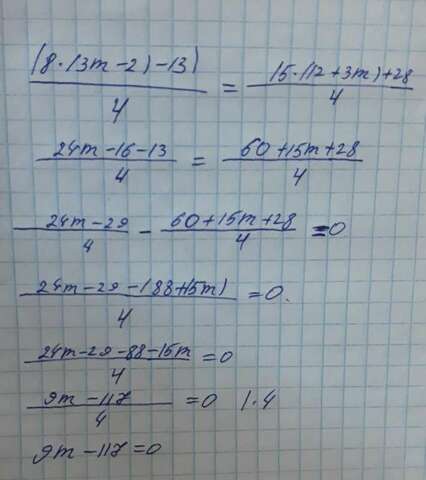 (8·(3m-2)-13)/4 = 15·(12+3m)+28/4
24m-16-13/4 = 60+15m+28/4
24m-29/4 - 60+15m+28/4 = 0
24m-29-(88+15m)/4 = 0.
24m-29-88-15m/4 = 0
9m-117/4 = 0 |·4
9m-117=0